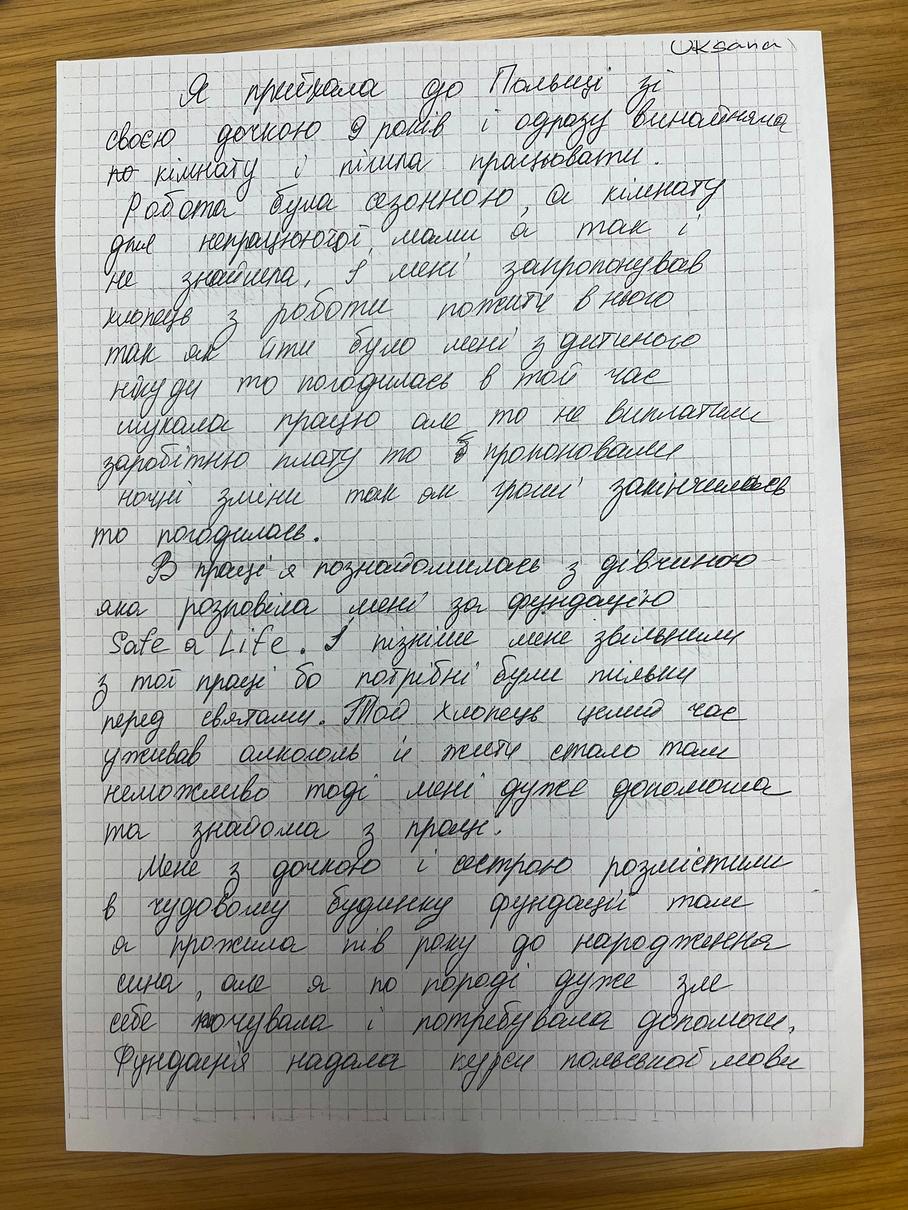 Uksana
Я приїхала до Польщі зі
своєю дочкою 9 років і одразу винайняла
по кімнату і пішла працювати.
Робота була сезонною, а кімнату
для непрацюючої мами а так і
не знайшла. І мені запропонував
хлопець з роботи пожити в нього
так як йти було мені з дитиною
нікуди то погодилась в той час
шукала працю але то не виплатили
заробітню плату то пропоновали
ночні зміни так як гроші закінчились
то погодилась.
В праці я познайомилась з дівчиною
яка розповіла мені за фундацію
Safe a Life. І пізніше мене звільнили
з тої праці бо потрібні були тільки
перед святами. Той хлопець целий час
уживав алкоголь и жити стало там
неможливо тоді мені дуже допомогла
та знайома з праці.
Мене з дочкою і сестрою розмістили
в чудовому будинку фундації там
я прожила пів року до народження
сина, але я по породі дуже зле
себе почувала і потребувала допомоги.
Фундація надала курси польської мови